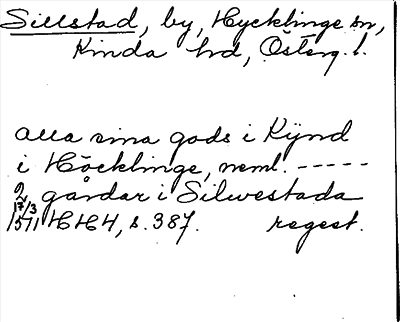 Sillstad, by, Hycklinge sn,
Kinda hd, Österg. l.
alla sina gods i Kÿnd
i Höcklinge, neml. -----
2 gårdar i Silwestada
17/3 1571 HH4, s. 387. regest.